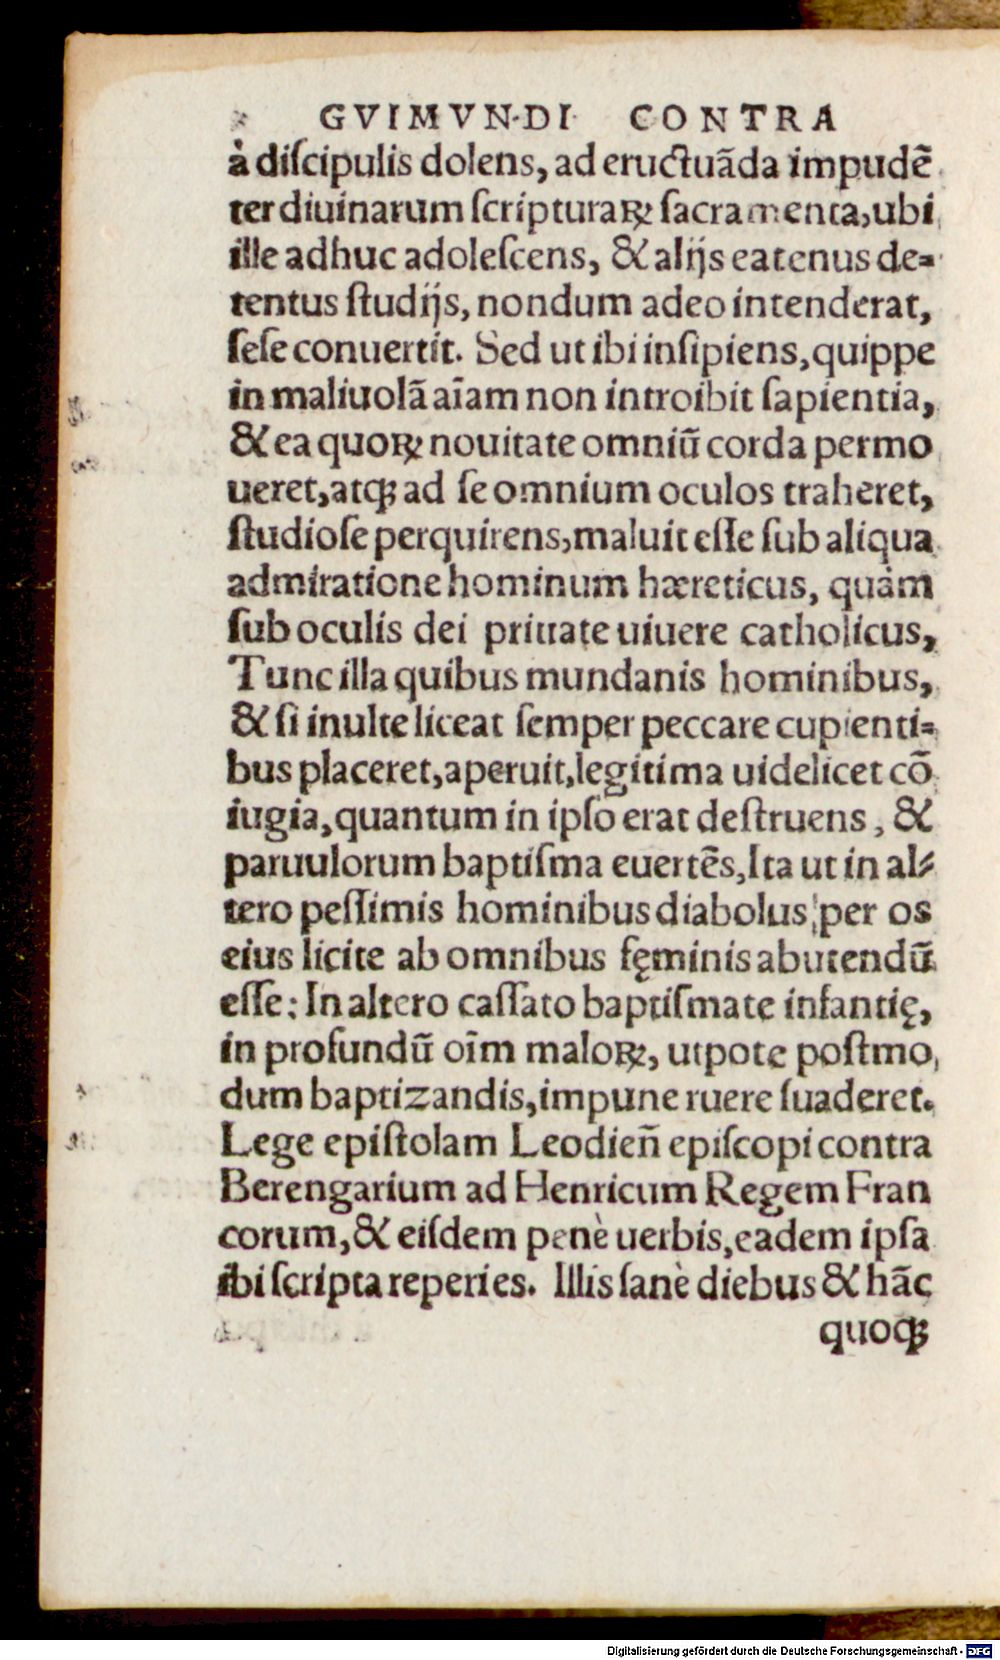 GVIMVNDI CONTRA
à diſcipulis dolens, ad eructuãda impudẽ
ter diuinarum ſcripturaꝝ ſacramenta, ubi
ille adhuc adoleſcens, & alijs eatenus de-
tentus ſtudijs, nondum adeo intenderat,
ſeſe conuertit. Sed ut ibi inſipiens, quippe
in maliuolã aĩam non introibit ſapientia,
& ea quoꝝ nouitate omniũ corda permo
ueret, atꝙ ad ſe omnium oculos traheret,
ſtudioſe perquirens, maluit eſſe ſub aliqua
admiratione hominum hæreticus, quàm
ſub oculis dei priuate uiuere catholicus,
Tunc illa quibus mundanis hominibus,
& ſi inulte liceat ſemper peccare cupienti-
bus placeret, aperuit, legitima uidelicet cõ
iugia, quantum in ipſo erat deſtruens, &
paruulorum baptiſma euertẽs, Ita ut in al-
tero peſſimis hominibus diabolus per os
eius licite ab omnibus fęminis abutendũ
eſſe: In altero caſſato baptiſmate infantię,
in profundũ oĩm maloꝝ, utpote poſtmo
dum baptizandis, impune ruere ſuaderet.
Lege epiſtolam Leodieñ epiſcopi contra
Berengarium ad Henricum Regem Fran
corum, & eiſdem penè uerbis, eadem ipſa
ibi ſcripta reperies. Illis ſanè diebus & hãc
quoꝙ
Digitalisierung gefördert durch die Deutsche Forschungsgemeinschaft - DFG